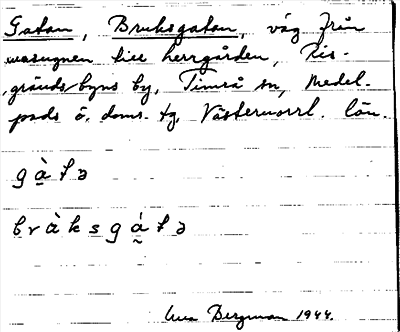 Gatan, Bruksgatan, väg från
masugnen till herrgården, Lis-
gränds byns by, Timrå sn, Medel-
pads ö. doms. tg, Västernorrl. län.
gà̱tə
bràksgá̰tə
Bergman 1944.